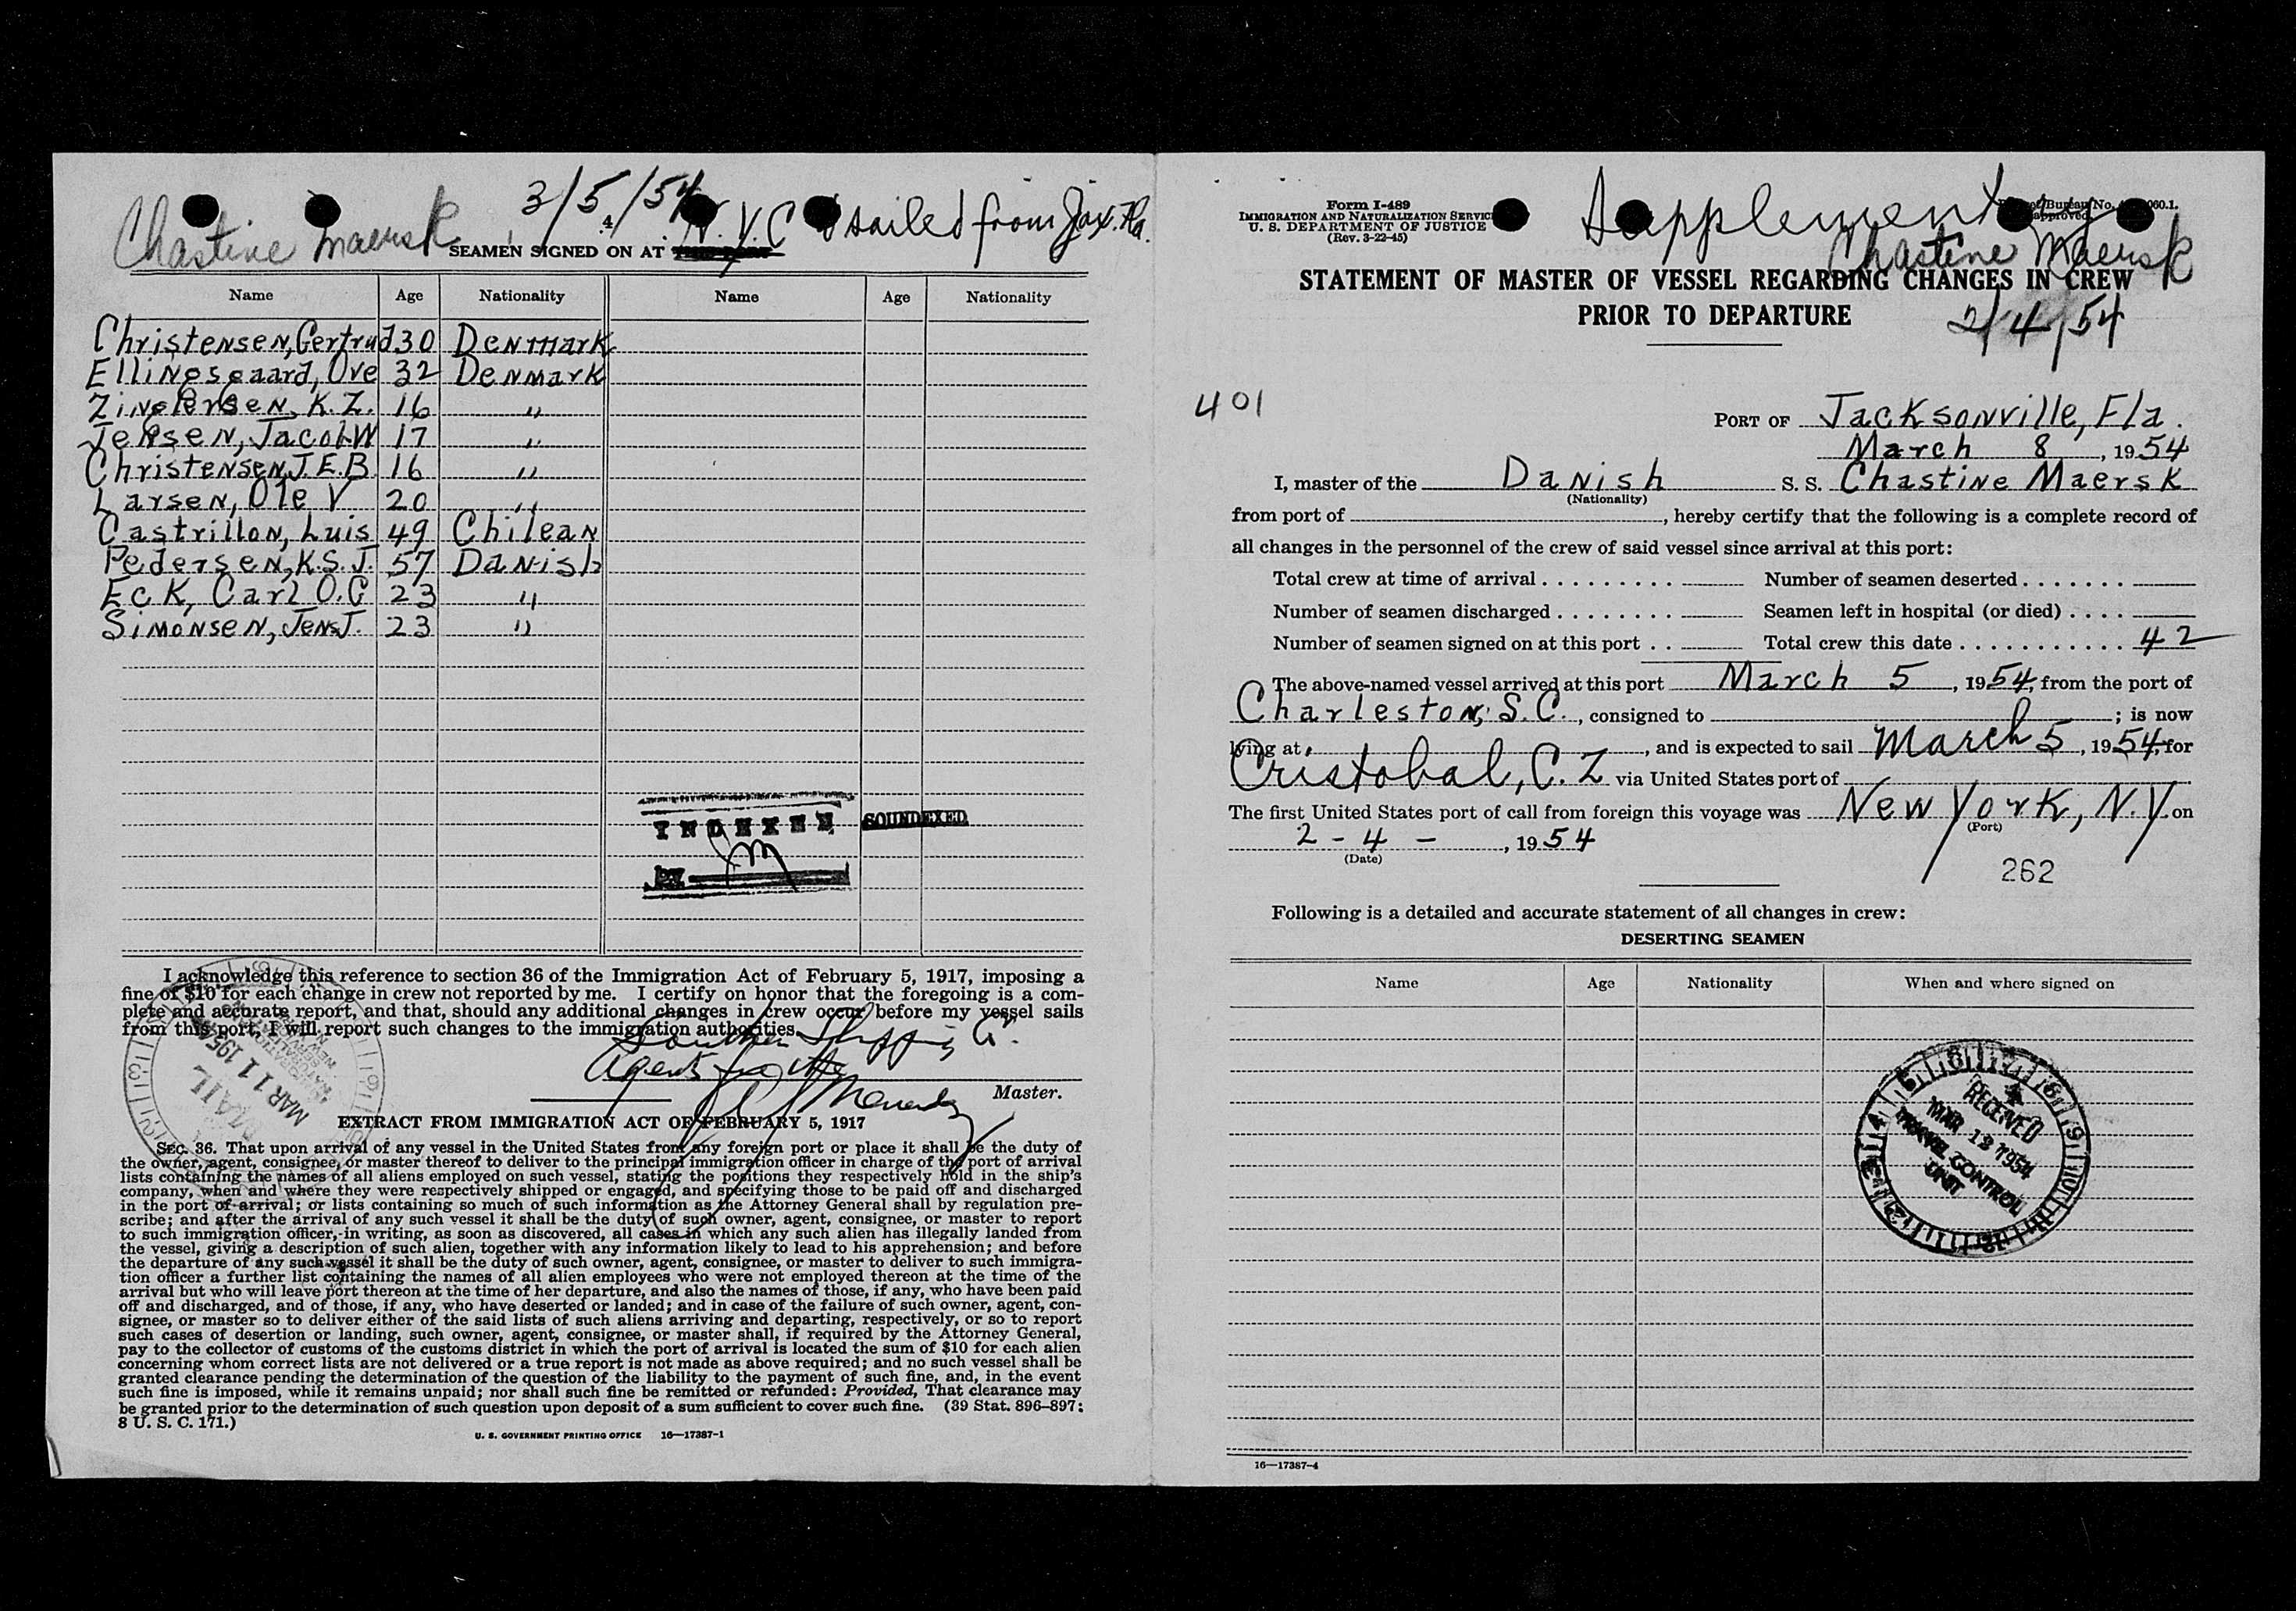 Chastine Maersk 3/5/54 N.Y.C & sailed from Jax. Fla.
4
SEAMEN SIGNED ON AT
Name Age Nationality Name Age Nationality
Christensen, Gertrud 30 Denmark
Ellingsgaard, Ove 32 Denmark
K. Z. 16 "
Jensen, Jacob W 17 "
Christensen, J. E. B. 16 "
Larsen, Ole V 20 "
Castrillon, Luis 49 Chilean
Pedersen, K. S. J. 57 Danish
Eck, Carl O. G 23 "
Simonsen, Jens J. 23 "
INDEXED SOUNDEXED
BY
I acknowledge this reference to section 36 of the Immigration Act of February 5, 1917, imposing a
fine of $10 for each change in crew not reported by me. I certify on honor that the foregoing is a com-
plete and accurate report, and that, should any additional changes in crew occur before my vessel sails
from this port, I will report such changes to the immigration authorities.
Southern Shipping Co.
Agents for the
Master.
MAIL
MAR 11 1954
EXTRACT FROM IMMIGRATION ACT OF FEBRUARY 5, 1917
SEC. 36. That upon arrival of any vessel in the United States from any foreign port or place it shall be the duty of
the owner, agent, consignee, or master thereof to deliver to the principal immigration officer in charge of the port of arrival
lists containing the names of all aliens employed on such vessel, stating the positions they respectively hold in the ship's
company, when and where they were respectively shipped or engaged, and specifying those to be paid off and discharged
in the port of arrival; or lists containing so much of such information as the Attorney General shall by regulation pre-
scribe; and after the arrival of any such vessel it shall be the duty of such owner, agent, consignee, or master to report
to such immigration officer, in writing, as soon as discovered, all cases in which any such alien has illegally landed from
the vessel, giving a description of such alien, together with any information likely to lead to his apprehension; and before
the departure of any such vessel it shall be the duty of such owner, agent, consignee, or master to deliver to such immigra-
tion officer a further list containing the names of all alien employees who were not employed thereon at the time of the
arrival but who will leave port thereon at the time of her departure, and also the names of those, if any, who have been paid
off and discharged, and of those, if any, who have deserted or landed; and in case of the failure of such owner, agent, con-
signee, or master so to deliver either of the said lists of such aliens arriving and departing, respectively, or so to report
such cases of desertion or landing, such owner, agent, consignee, or master shall, if required by the Attorney General,
pay to the collector of customs of the customs district in which the port of arrival is located the sum of $10 for each alien
concerning whom correct lists are not delivered or a true report is not made as above required; and no such vessel shall be
granted clearance pending the determination of the question of the liability to the payment of such fine, and, in the event
such fine is imposed, while it remains unpaid; nor shall such fine be remitted or refunded: Provided, That clearance may
be granted prior to the determination of such question upon deposit of a sum sufficient to cover such fine. (39 Stat. 896–897;
8 U. S. C. 171.)
U. S. GOVERNMENT PRINTING OFFICE 16—17387-1
Form I-489
IMMIGRATION AND NATURALIZATION SERVICE
U. S. DEPARTMENT OF JUSTICE
(Rev. 3-22-45)
Bureau No. 060.1.
approved
Supplementry
Chastine Maersk
STATEMENT OF MASTER OF VESSEL REGARDING CHANGES IN CREW
PRIOR TO DEPARTURE
2/4/54
401
PORT OF Jacksonville, Fla.
March 8, 1954
I, master of the Danish S. S. Chastine Maersk
(Nationality)
from port of , hereby certify that the following is a complete record of
all changes in the personnel of the crew of said vessel since arrival at this port:
Total crew at time of arrival . . . . . . . . . Number of seamen deserted . . . . . . .
Number of seamen discharged . . . . . . . . Seamen left in hospital (or died) . . . .
Number of seamen signed on at this port . . Total crew this date . . . . . . . . . . . 42
The above-named vessel arrived at this port March 5, 1954, from the port of
Charleston, S. C., consigned to ; is now
lying at , and is expected to sail March 5, 1954, for
Cristobal, C. Z via United States port of
The first United States port of call from foreign this voyage was New York, N. Y. on
(Port)
2 - 4 - , 1954
(Date)
262
Following is a detailed and accurate statement of all changes in crew:
DESERTING SEAMEN
Name Age Nationality When and where signed on
RECEIVED
MAR 12 1954
TRAVEL CONTROL
UNIT
16—17387-4